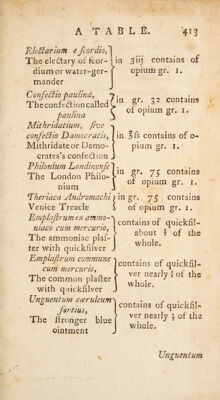 A TABLE. 413
Electarium e scordio,
The electary of scor-
dium or water-ger-
mander
in ʒiij contains of
opium gr. 1.
Confectio paulina,
The confection called
paulina
in gr. 32 contains
of opium gr. 1.
Mithridatium, sive
confectio Damocratis,
Mithridate or Damo-
crates's confection
in ℥ſs contains of o-
pium gr. 1.
Philonium Londinense
The London Philo-
nium
in gr. 75 contains
of opium gr. 1.
Theriaca Andromachi
Venice Treacle
in gr. 75 contains
of opium gr. 1.
Emplastrum ex ammo-
niaco cum mercurio,
The ammoniac plaſ-
ter with quickſilver
contains of quickſil-
about
of the
whole.
Emplaſtrum commune
cum mercurio,
The common plaſter
with quickſilver
contains of quickſil-
ver nearly
of the
whole.
Unguentum cæruleum
fortius,
The ſtronger blue
ointment
contains of quickſil-
ver nearly
of the
whole.
Unguentum